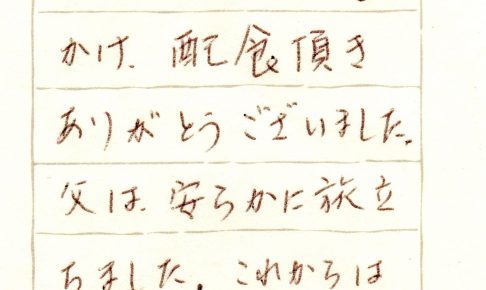 かけ、配食頂き
ありがとうございました。
父は、安らかに旅立
ちました。これからは